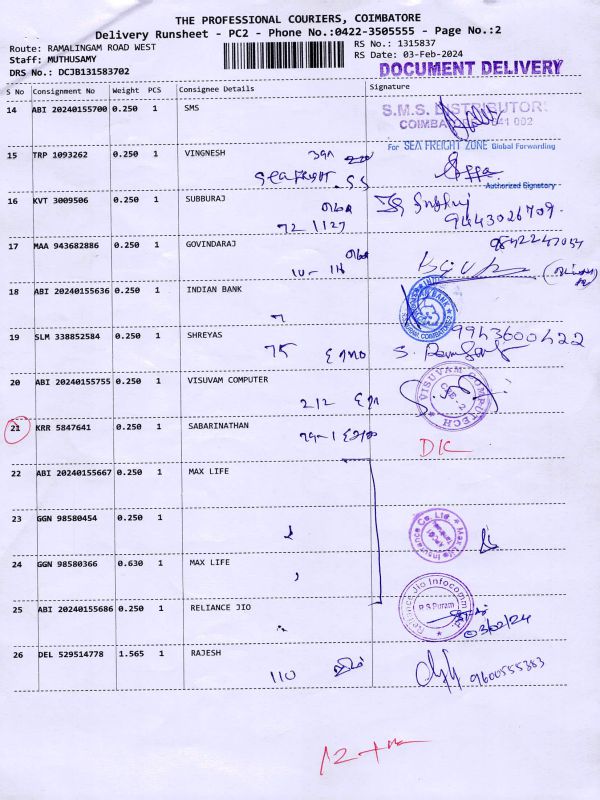 THE PROFESSIONAL COURIERS, COIMBATORE
Delivery Runsheet - PC2 - Phone No.:0422-3505555 - Page No.:2
Route: RAMALINGAM ROAD WEST
Staff: MUTHUSAMY
DRS No.: DCJB131583702
RS No.: 1315837
RS Date: 03-Feb-2024
DOCUMENT DELIVERY
S No Consignment No Weight PCS Consignee Details Signature
14 ABI 20240155700 0.250 1 SMS
S.M.S. DISTRIBUTOR
15 TRP 1093262 0.250 1 VINGNESH
For SEA FREIGHT ZONE Global Forwarding
Authorized Signatory
16 KVT 3009506 0.250 1 SUBBURAJ
72 1127
9443026709.
17 MAA 943682886 0.250 1 GOVINDARAJ
18 ABI 20240155636 0.250 1 INDIAN BANK
19 SLM 338852584 0.250 1 SHREYAS
75
9943600422
20 ABI 20240155755 0.250 1 VISUVAM COMPUTER
212
VISUVAM COMPUTECH
CBE. 2
21 KRR 5847641 0.250 1 SABARINATHAN
DK
22 ABI 20240155667 0.250 1 MAX LIFE
23 GGN 98580454 0.250 1
Max Life Insurance Co. Ltd.
24 GGN 98580366 0.630 1 MAX LIFE
25 ABI 20240155686 0.250 1 RELIANCE JIO
Reliance Jio Infocomm
R.S Puram
03/02/24
26 DEL 529514778 1.565 1 RAJESH
110
9600555383